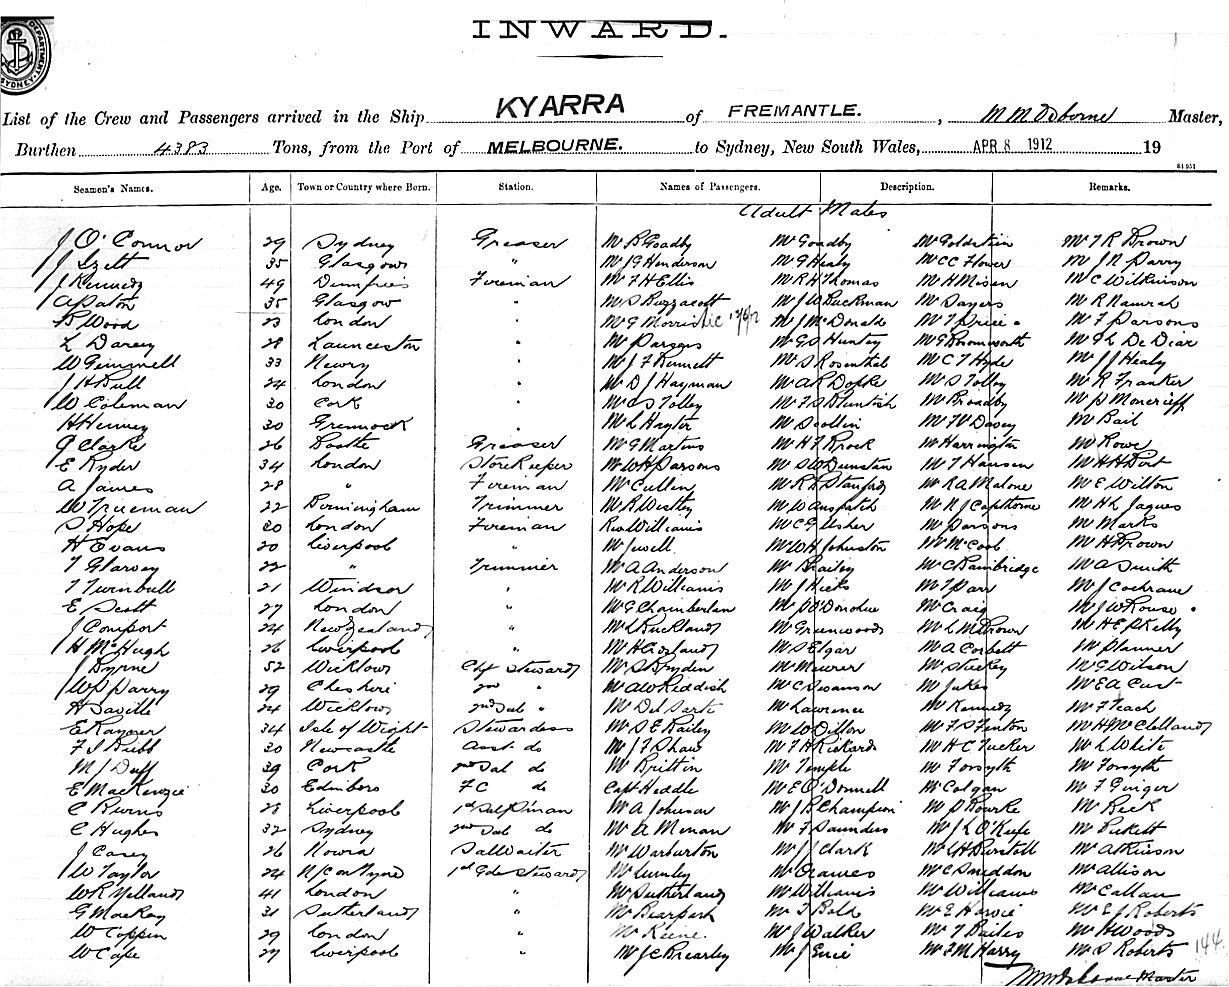 DEPARTMENT SYDNEY
INWARD.
List of the Crew and Passengers arrived in the Ship KYARRA of FREMANTLE. , M M Osborne Master,
Burthen 4383 Tons, from the Port of MELBOURNE. to Sydney, New South Wales, APR 8 1912 19
Seamen's Names. Age. Town or Country where Born. Station. Names of Passengers. Description. Remarks.
Adult Males
J O'Connor 29 Sydney Greaser Mr B Goadby Mr Goadby Mr Goldstein Mr T R Brown
J Izett 35 Glasgow " Mr J G Henderson Mr G Healy Mr C C Flower Mr J R Parry
J Kennedy 49 Dumfries Fireman Mr F H Ellis Mr R H Thomas Mr H Misen Mr C Wilkinson
A Paton 35 Glasgow " Mr S Buzzacott Mr J W Buckman Mr Sayers Mr R Namrah
B Wood 23 London " Mr G Morris Mr J McDonald Mr T Price Mr F Parsons
L Darey 28 Launceston " Mr Parges Mr G A Huntey Mr L De Diar
W Gemmell 33 Newry " Mr J F Bennett Mr S Rosenthal Mr C T Hyde Mr J J Healy
J H Bull 24 London " Mr D J Hayman Mr A R Dopke Mr S Tolley Mr R Franker
W Coleman 30 Cork " Mr C S Tolley Mr Broadby Mr P Moncrieff
H Henney 30 Greenock " Mr L Hayter Mr Scollin Mr F W Davey Mr Bail
G Clarke 26 Bootle Greaser Mr G Martins Mr H F Brock Mr Harrington Mr Rowe
E Ryder 34 London StoreKeeper Mr W H Parsons Mr S W Dunstan Mr T Hansen Mr H H Dart
A James 28 " Fireman Mr Cullin Mr R H Stanford Mr R A Malone Mr E Wilton
W Trueman 22 Birmingham Trimmer Mr R Westley Mr W Anspatch Mr R J Capthorne Mr H L Jaques
S Hope 30 London Fireman Rev Williams Mr C G Usher Mr Parsons Mr Marks
H Evans 20 Liverpool " Mr Jewell Mr W H Johnston Mr McCook Mr H Brown
T Glarvey 22 " Trimmer Mr A Anderson Mr Brailey Mr C Bambridge Mr A Smith
T Turnbull 21 Windsor " Mr R Williams Mr J Hicks Mr T Parr Mr J Cochrane
E Scott 27 London " Mr G Chamberlan Mr P O'Donohue Mr Craig Mr J W Rouse
J Comport 24 New Zealand " Mr L Buckland Mr Greenwood Mr L M Brown Mr H E P Kelly
H McHugh 26 Liverpool " Mr H Crosland Mr S Elgar Mr A Corbett Mr Planner
J Byrne 52 Wicklow Chf Steward Mr S Bryden Mr Maurer Mr Stuckey Mr G Wilson
W J Parry 29 Cheshire 2nd " Mr A W Reddish Mr C Swanson Mr Jukes Mr E A Cust
H Saville 24 Wicklow 2nd Sal " Mr Del Sarte Mr Lawrence Mr Kennedy Mr F Teach
E Rayner 34 Isle of Wight Stewardess Mr S E Bailey Mr W Dillon Mr F S Fenton Mr H McClelland
F J Bubb 30 Newcastle Asst do Mr J F Shaw Mr F H Rickard Mr H C Tucker Mr L White
M J Duff 39 Cork 2nd Sal do Mr Brittin Mr Temple Mr Forsyth Mr Forsyth
E MacKenzie 30 Edinboro FC do Capt Heddle Mr E O'Donnell Mr Colgan Mr F Ginger
C Burns 28 Liverpool 1st Sal P'man Mr A Johnson Mr J B Champion Mr P Bourke Mr Beck
C Hughes 32 Sydney 2nd Sal do Mr A Menan Mr F Saunders Mr J L O'Keefe Mr Pickett
J Casey 26 Nowra Sal Waiter Mr Warburton Mr J Clark Mr G H Burstall Mr Atkinson
W Taylor 24 N/C on Tyne 1st Gde Steward Mr Lumley Mr Craimes Mr C Sneddon Mr Allison
W R Yelland 41 London " Mr Sutherland Mr Williams Mr Williams Mr Callan
G MacKay 31 Sutherland " Mr Bearpark Mr T Bold Mr E Harvie Mr E J Roberts
W Coppin 29 London " Mr Keene. Mr J Walker Mr T Bailes Mr H Woods
W Cape 27 Liverpool " Mr J C Brearley Mr J Errie Mr F M Harry Mr S Roberts 144
M M Osborne Master